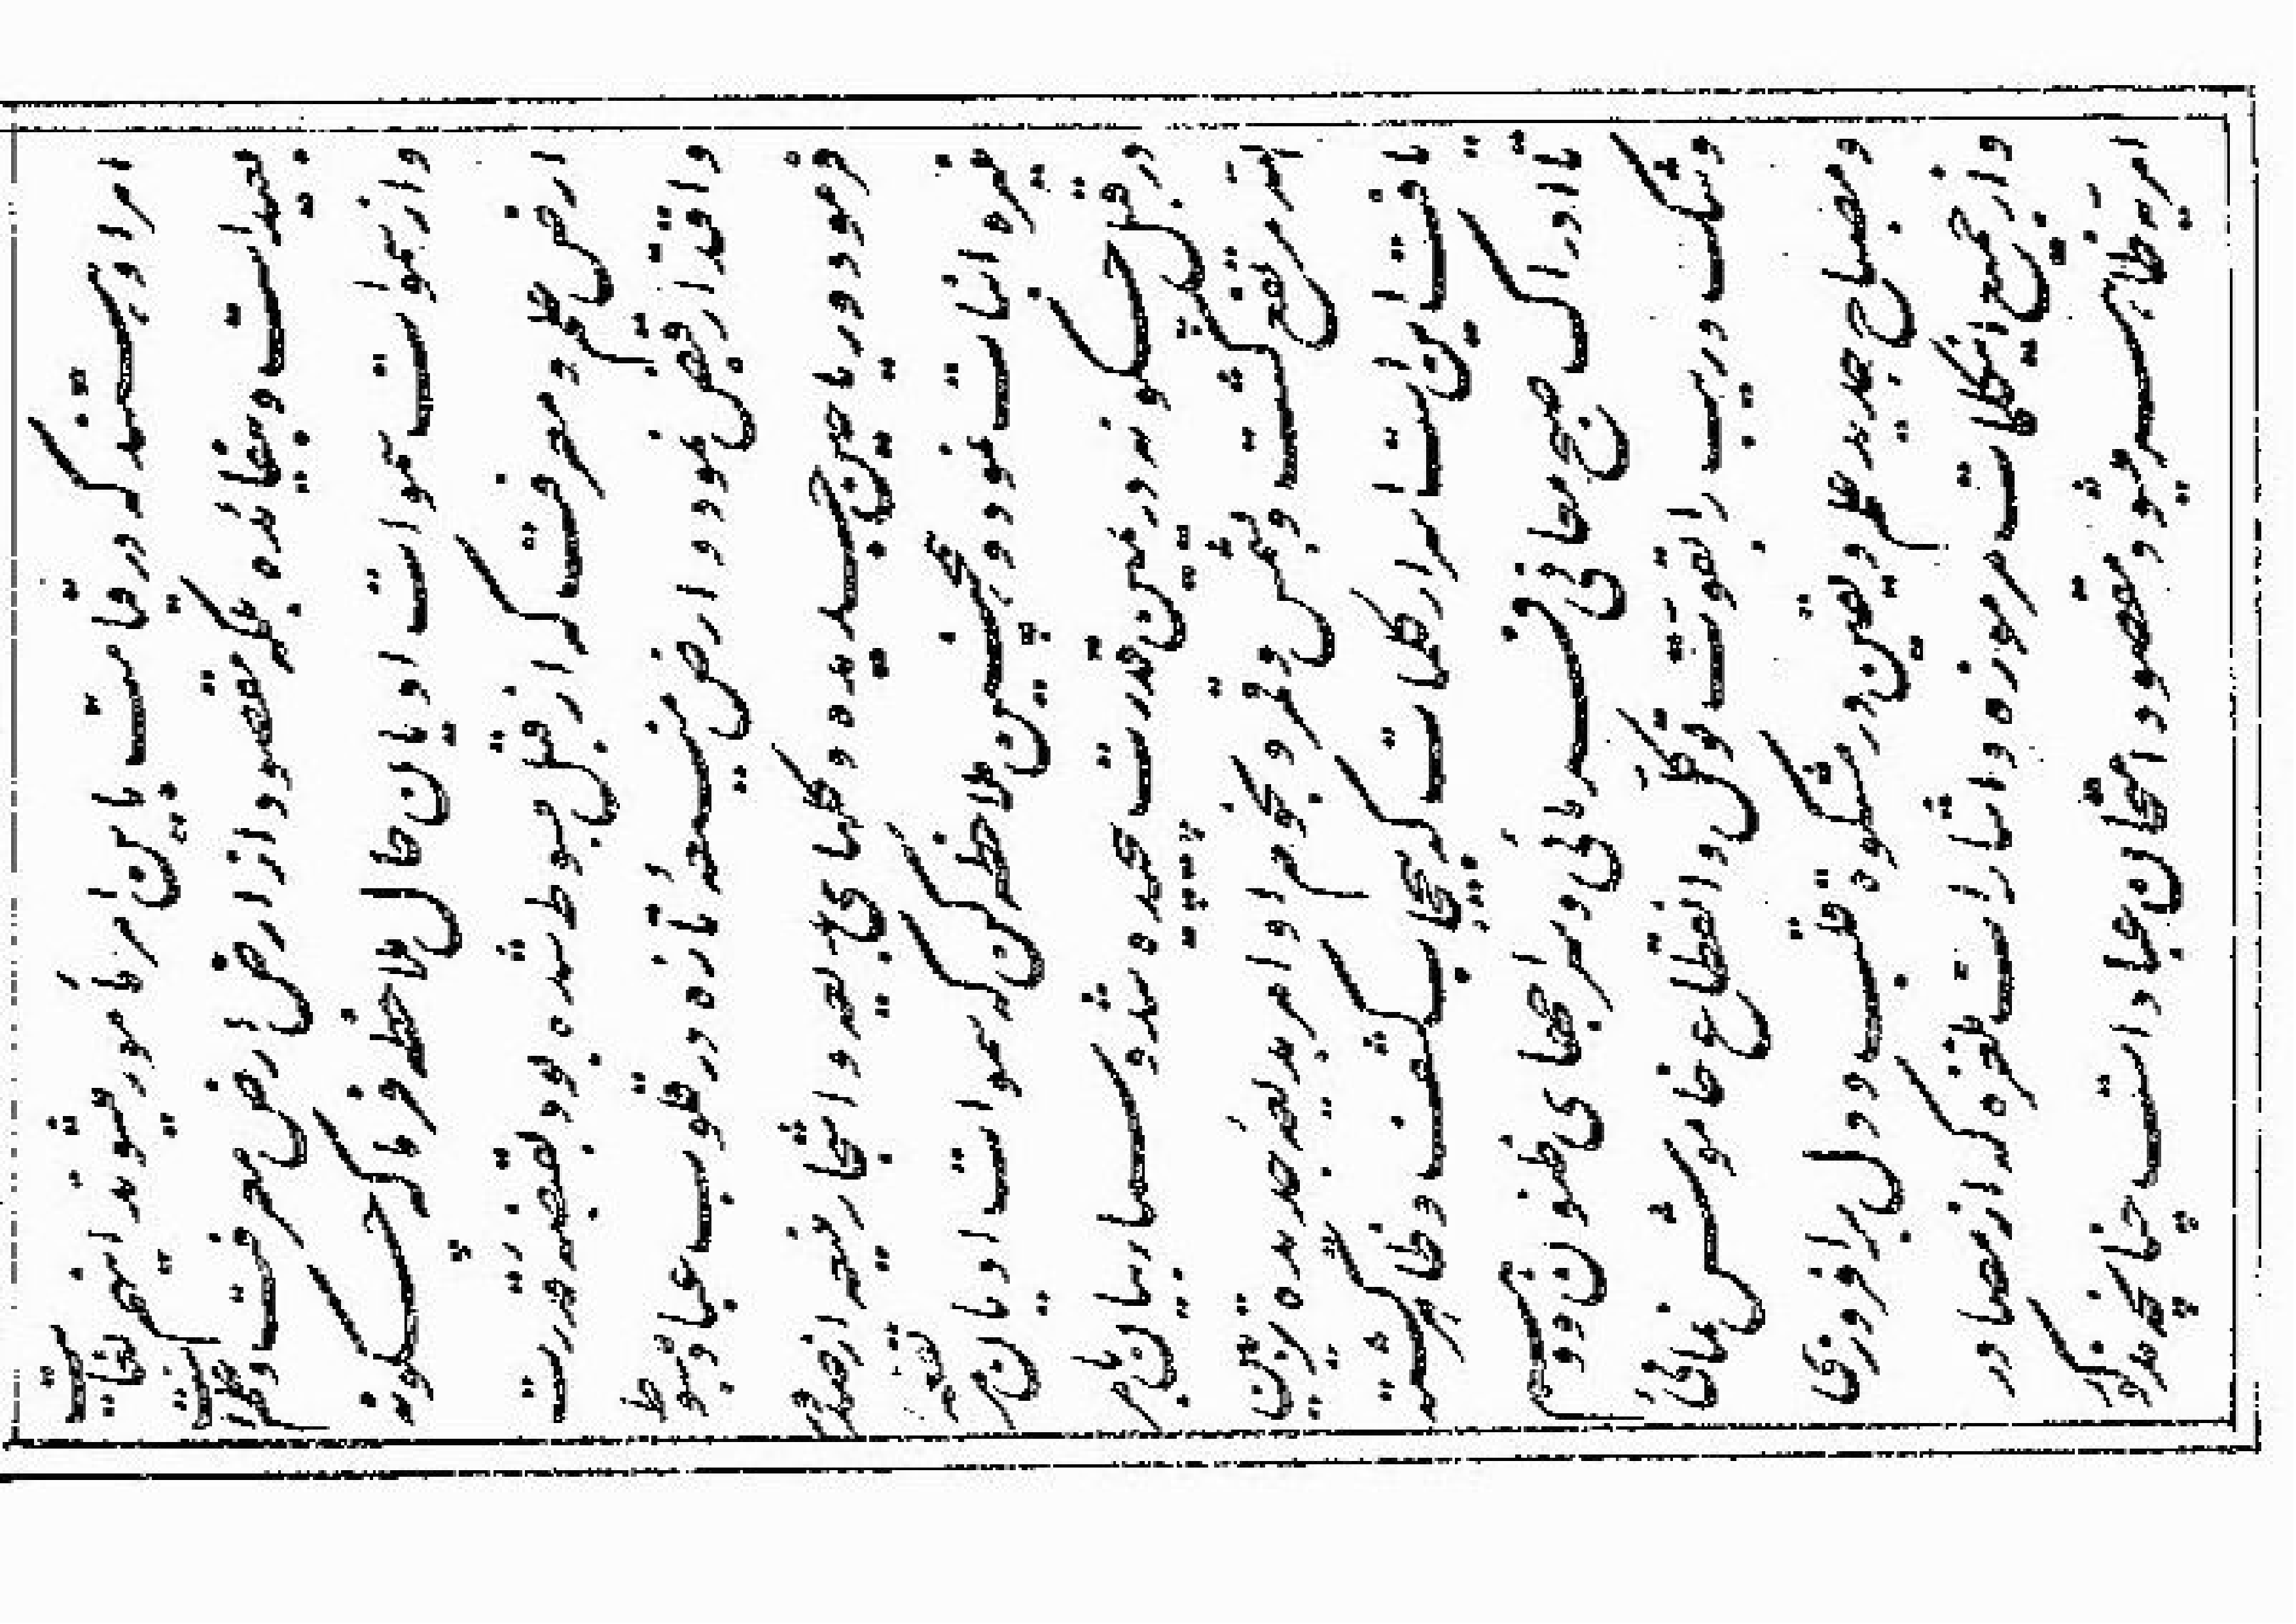 امر اویند که در قیامت باین امر مأمور میشوند اینهم بغایت
بعید است و بیفائده بلکه مقصود از ارض ارض معرفت و علم است
و از سموات سموات ادیان حال ملاحظه فرما که چگونه
ارض علم و معرفت که از قبل مبسوط شده بود بقبضه قدرت
و اقتدار قبض نمود و ارض منیعه تازه در قلوب عباد مبسوط
فرمود و ریاحین جدیده و گلهای بدیعه و اشجار منیعه از صدور
منیره انبات نمود و همچنین ملاحظه کن که سموات ادیان مرتفعه
در قبل چگونه در یمین قدرت پیچیده شد سماء بیان بامر
الله مرتفع گشت و بشمس و قمر و نجوم اوامر بدیعه جدیده تزیین
یافت اینست اسرار کلمات که بی حجاب کشف و ظاهر گشته
تا ادراک صبح معانی فرمائی و سراجهای ظنون و وهم
و شک و ریب را بقوت توکل و انقطاع خاموش نمائی
و مصباح جدید علم و یقین در مشکوة قلب و دل برافروزی
و از جمیع این کلمات مرموزه و اشارات ملغزه که از مصادر
امریه ظاهر میشود مقصود امتحان عباد است چنانچه مذکور